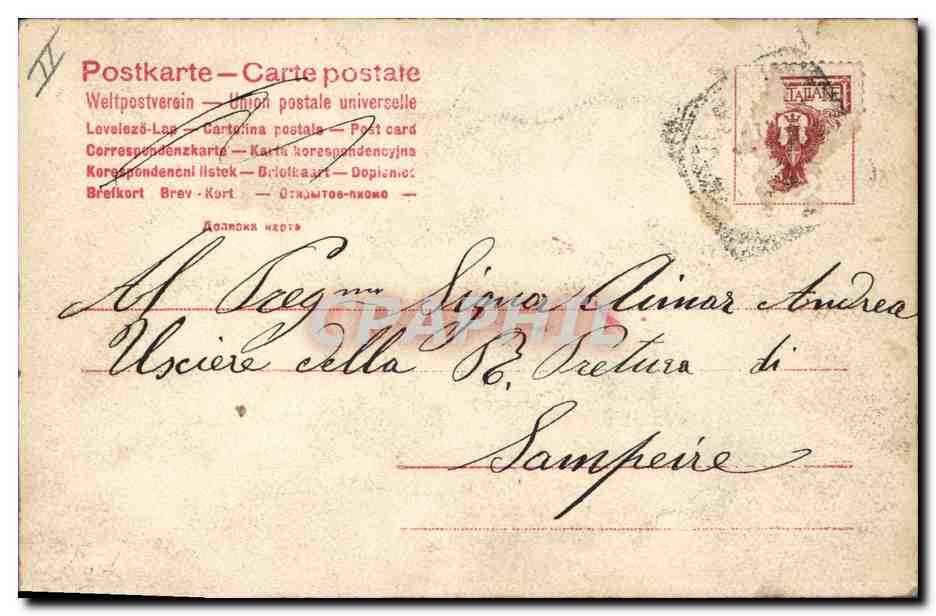 II
Postkarte — Carte postale
Weltpostverein — Union postale universelle
Levelező-Lap — Cartolina postale — Post card
Correspondenzkarte — Karta korespondencyjna
Korespondenčni listek — Briefkaart — Dopisnice
Brefkort Brev-Kort — Открытое-письмо —
Дописна карта
ITALIANE
Al Pregmo Signor Aimar Andrea
Usciere della R. Pretura di
Sampeire
CRAPHIL